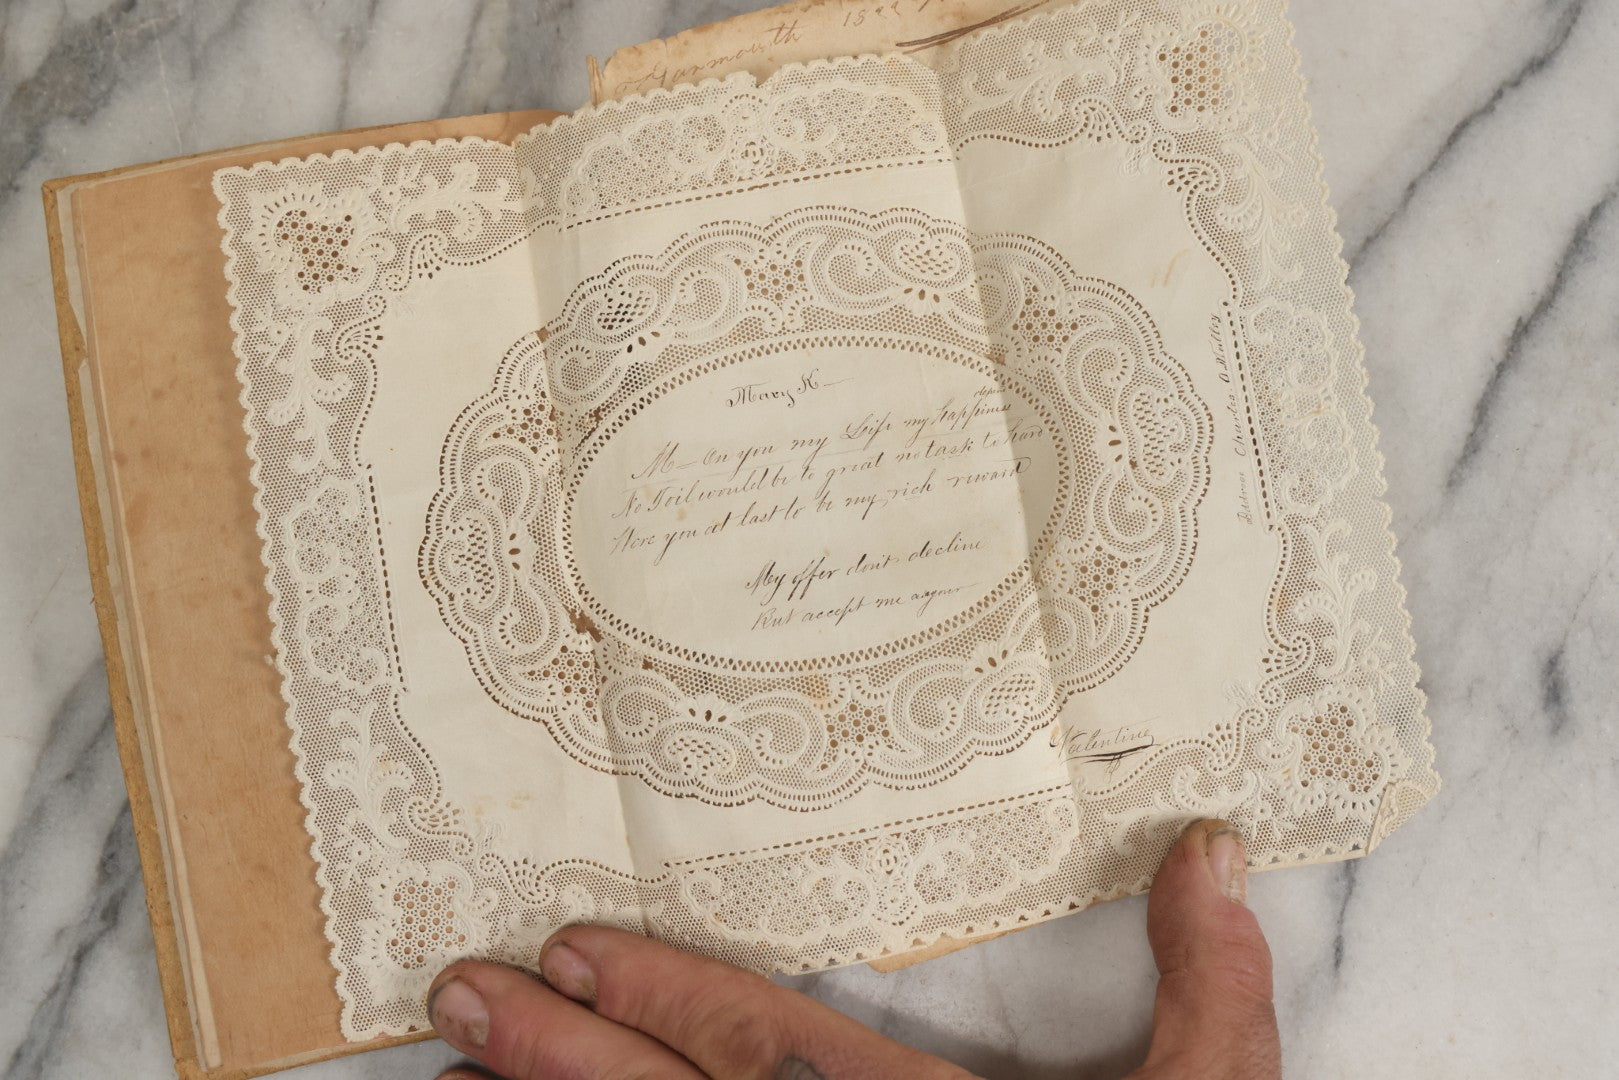 Yarmouth 18
Mary K—
depend
M— On you my Life my happiness
No Toil would be to great no task to hard
Were you at last to be my rich reward
My offer don't decline
But accept me as your
Valentine
Charles